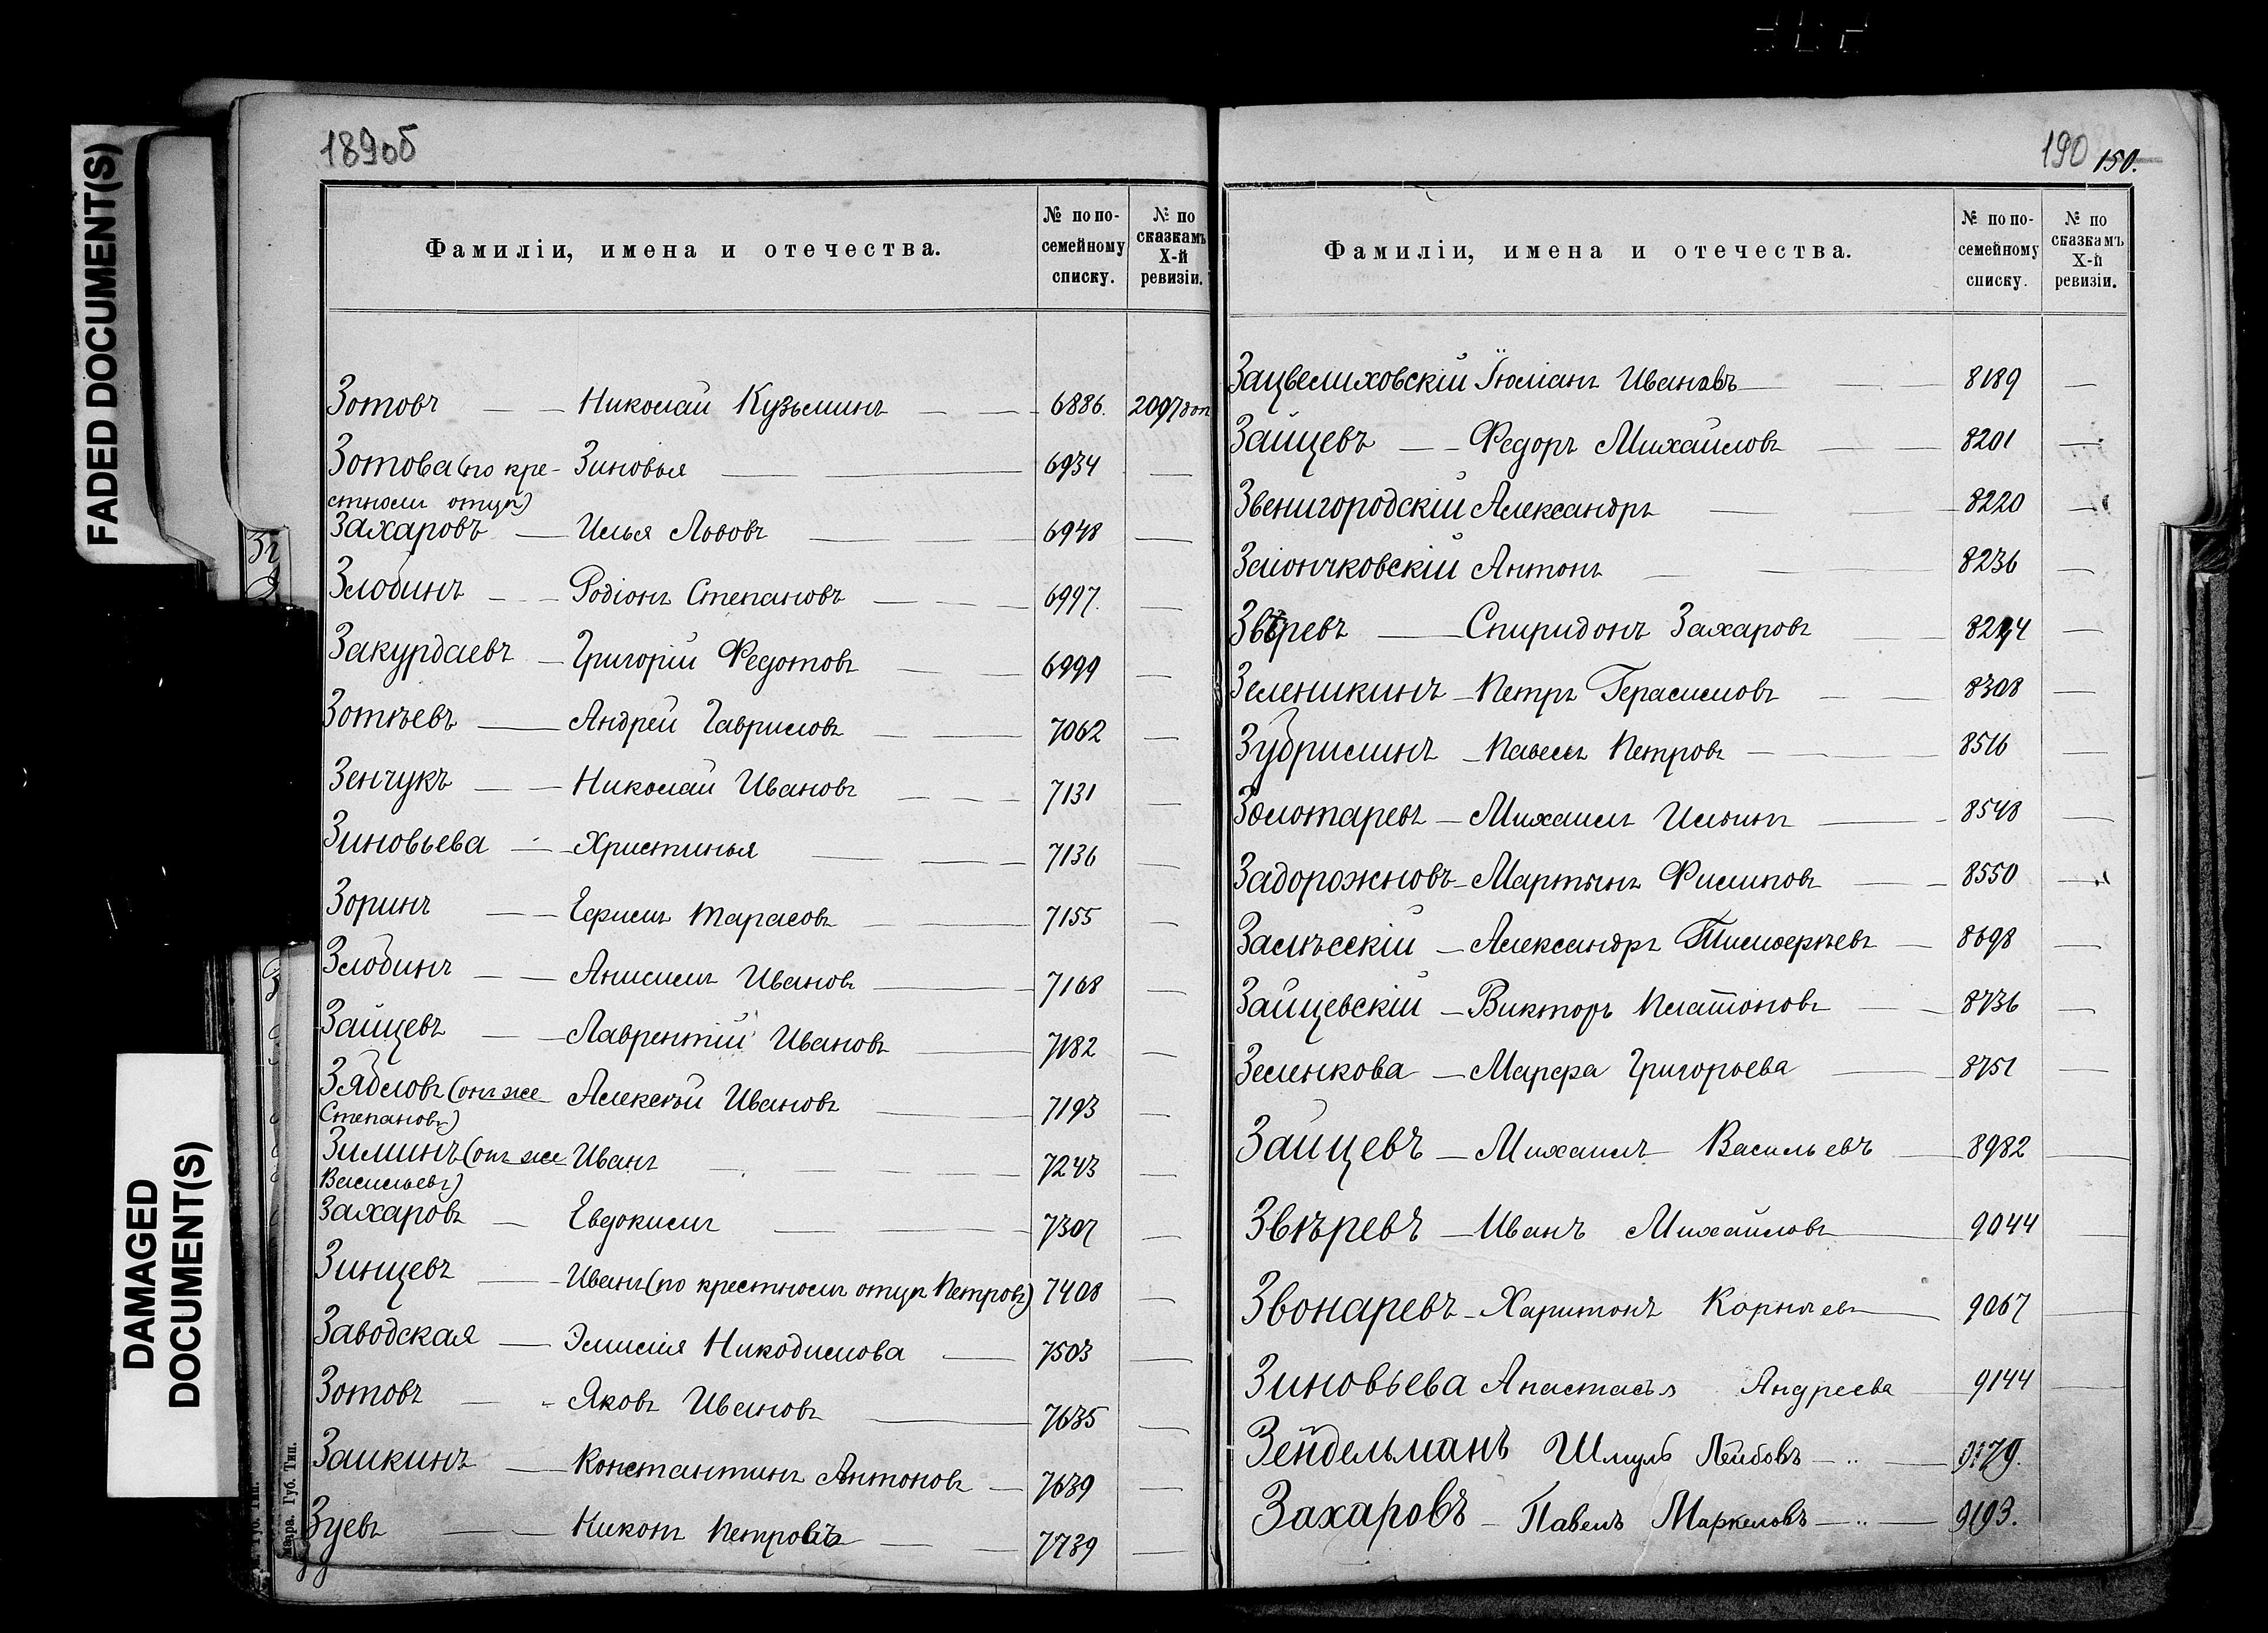 FADED DOCUMENT(S)
DAMAGED
DOCUMENT(S)
189об
Фамиліи, имена и отечества.
№ по по-
семейному
списку.
№ по
сказкамъ
X-й
ревизіи.
Зотовъ — — Николай Кузьминъ — — 6886. 2097 доп
Зотова (по кре- Зиновья — 6934 —
стном отцу)
Захаровъ — Илья Львовъ — — 6948 —
Злобинъ — — Родіонъ Степановъ — — — 6997. —
Закурдаевъ — Григорій Федотовъ — — 6999 —
Зотѣевъ — Андрей Гавриловъ — — 7062 —
Зенчукъ — — Николай Ивановъ — — — 7131 —
Зиновьева — — Христинья — — — 7136 —
Зоринъ — — Ефимъ Тарасовъ — — 7155 —
Злобинъ — — Анисимъ Ивановъ — — 7168 —
Зайцевъ — — Лаврентій Ивановъ — — 7182 —
Зябловъ (онъ же Алексѣй Ивановъ — — 7193 —
Степановъ)
Зиминъ (онъ же Иванъ — — — 7243 —
Васильевъ)
Захаровъ — Евдокимъ — — 7307 —
Зинцевъ — — Иванъ (по крестном отцу Петровъ) 7408 —
Заводская — Эмилія Никодимова — 7503 —
Зотовъ — — Яковъ Ивановъ — 7635 —
Заикинъ — Константинъ Антоновъ — 7639 —
Зуевъ — — Никонъ Петровъ — — 7739 —
190 150.
Фамиліи, имена и отечества.
№ по по-
семейному
списку.
№ по
сказкамъ
X-й
ревизіи.
Зацвелиховскій Юліанъ Ивановъ — — 8189 —
Зайцевъ — — Федоръ Михайловъ — — 8201 —
Звенигородскій Александръ — — 8220 —
Заіончковскій Антонъ — — 8236 —
Звѣревъ — Спиридонъ Захаровъ — 8294 —
Зеленикинъ — Петръ Герасимовъ — — 8308 —
Зубрилинъ — Павелъ Петровъ — — 8516 —
Золотаревъ — Михаилъ Ильинъ — — 8548 —
Задорожновъ — Мартынъ Филиповъ — — 8550 —
Залѣсскій — Александръ Тимоѳеевъ — 8698 —
Зайцевскій — Викторъ Платоновъ — — 8736 —
Зеленкова — Марфа Григорьева — 8751 —
Зайцевъ — Михаилъ Васильевъ — 8982 —
Звѣревъ — Иванъ Михайловъ — 9044 —
Звонаревъ — Харитонъ Корнѣев — 9067 —
Зиновьева Анастасья Андреева — 9144 —
Зейдельманъ Шмуль Лейбовъ — „ — 9179.
Захаровъ — Павелъ Маркеловъ — „ — 9193.
Губ. Тип.